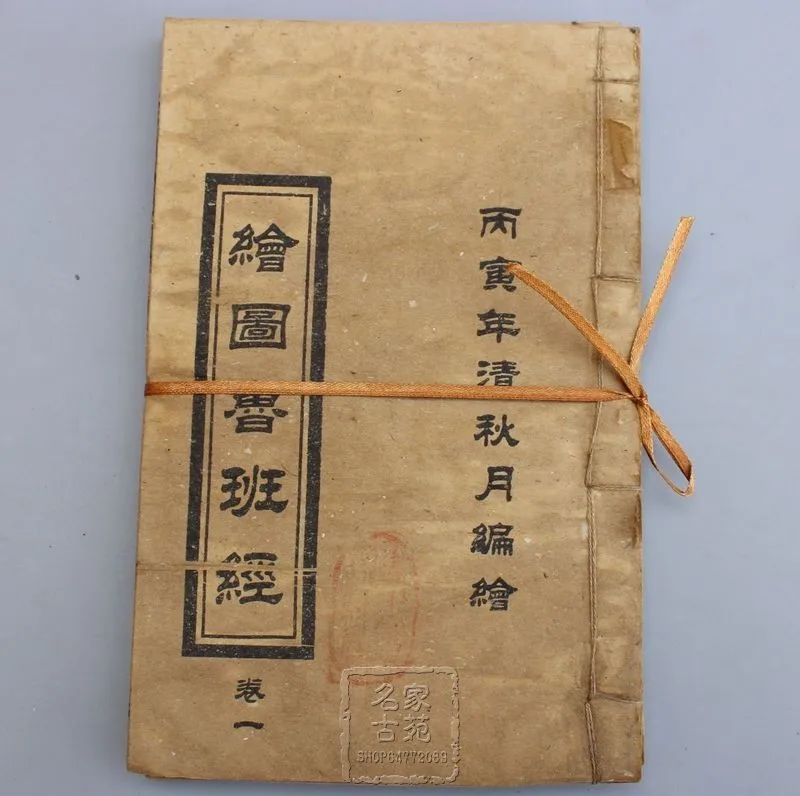 丙寅年清秋月編繪
繪圖魯班經
卷一
名家
古苑
SHOP64772089